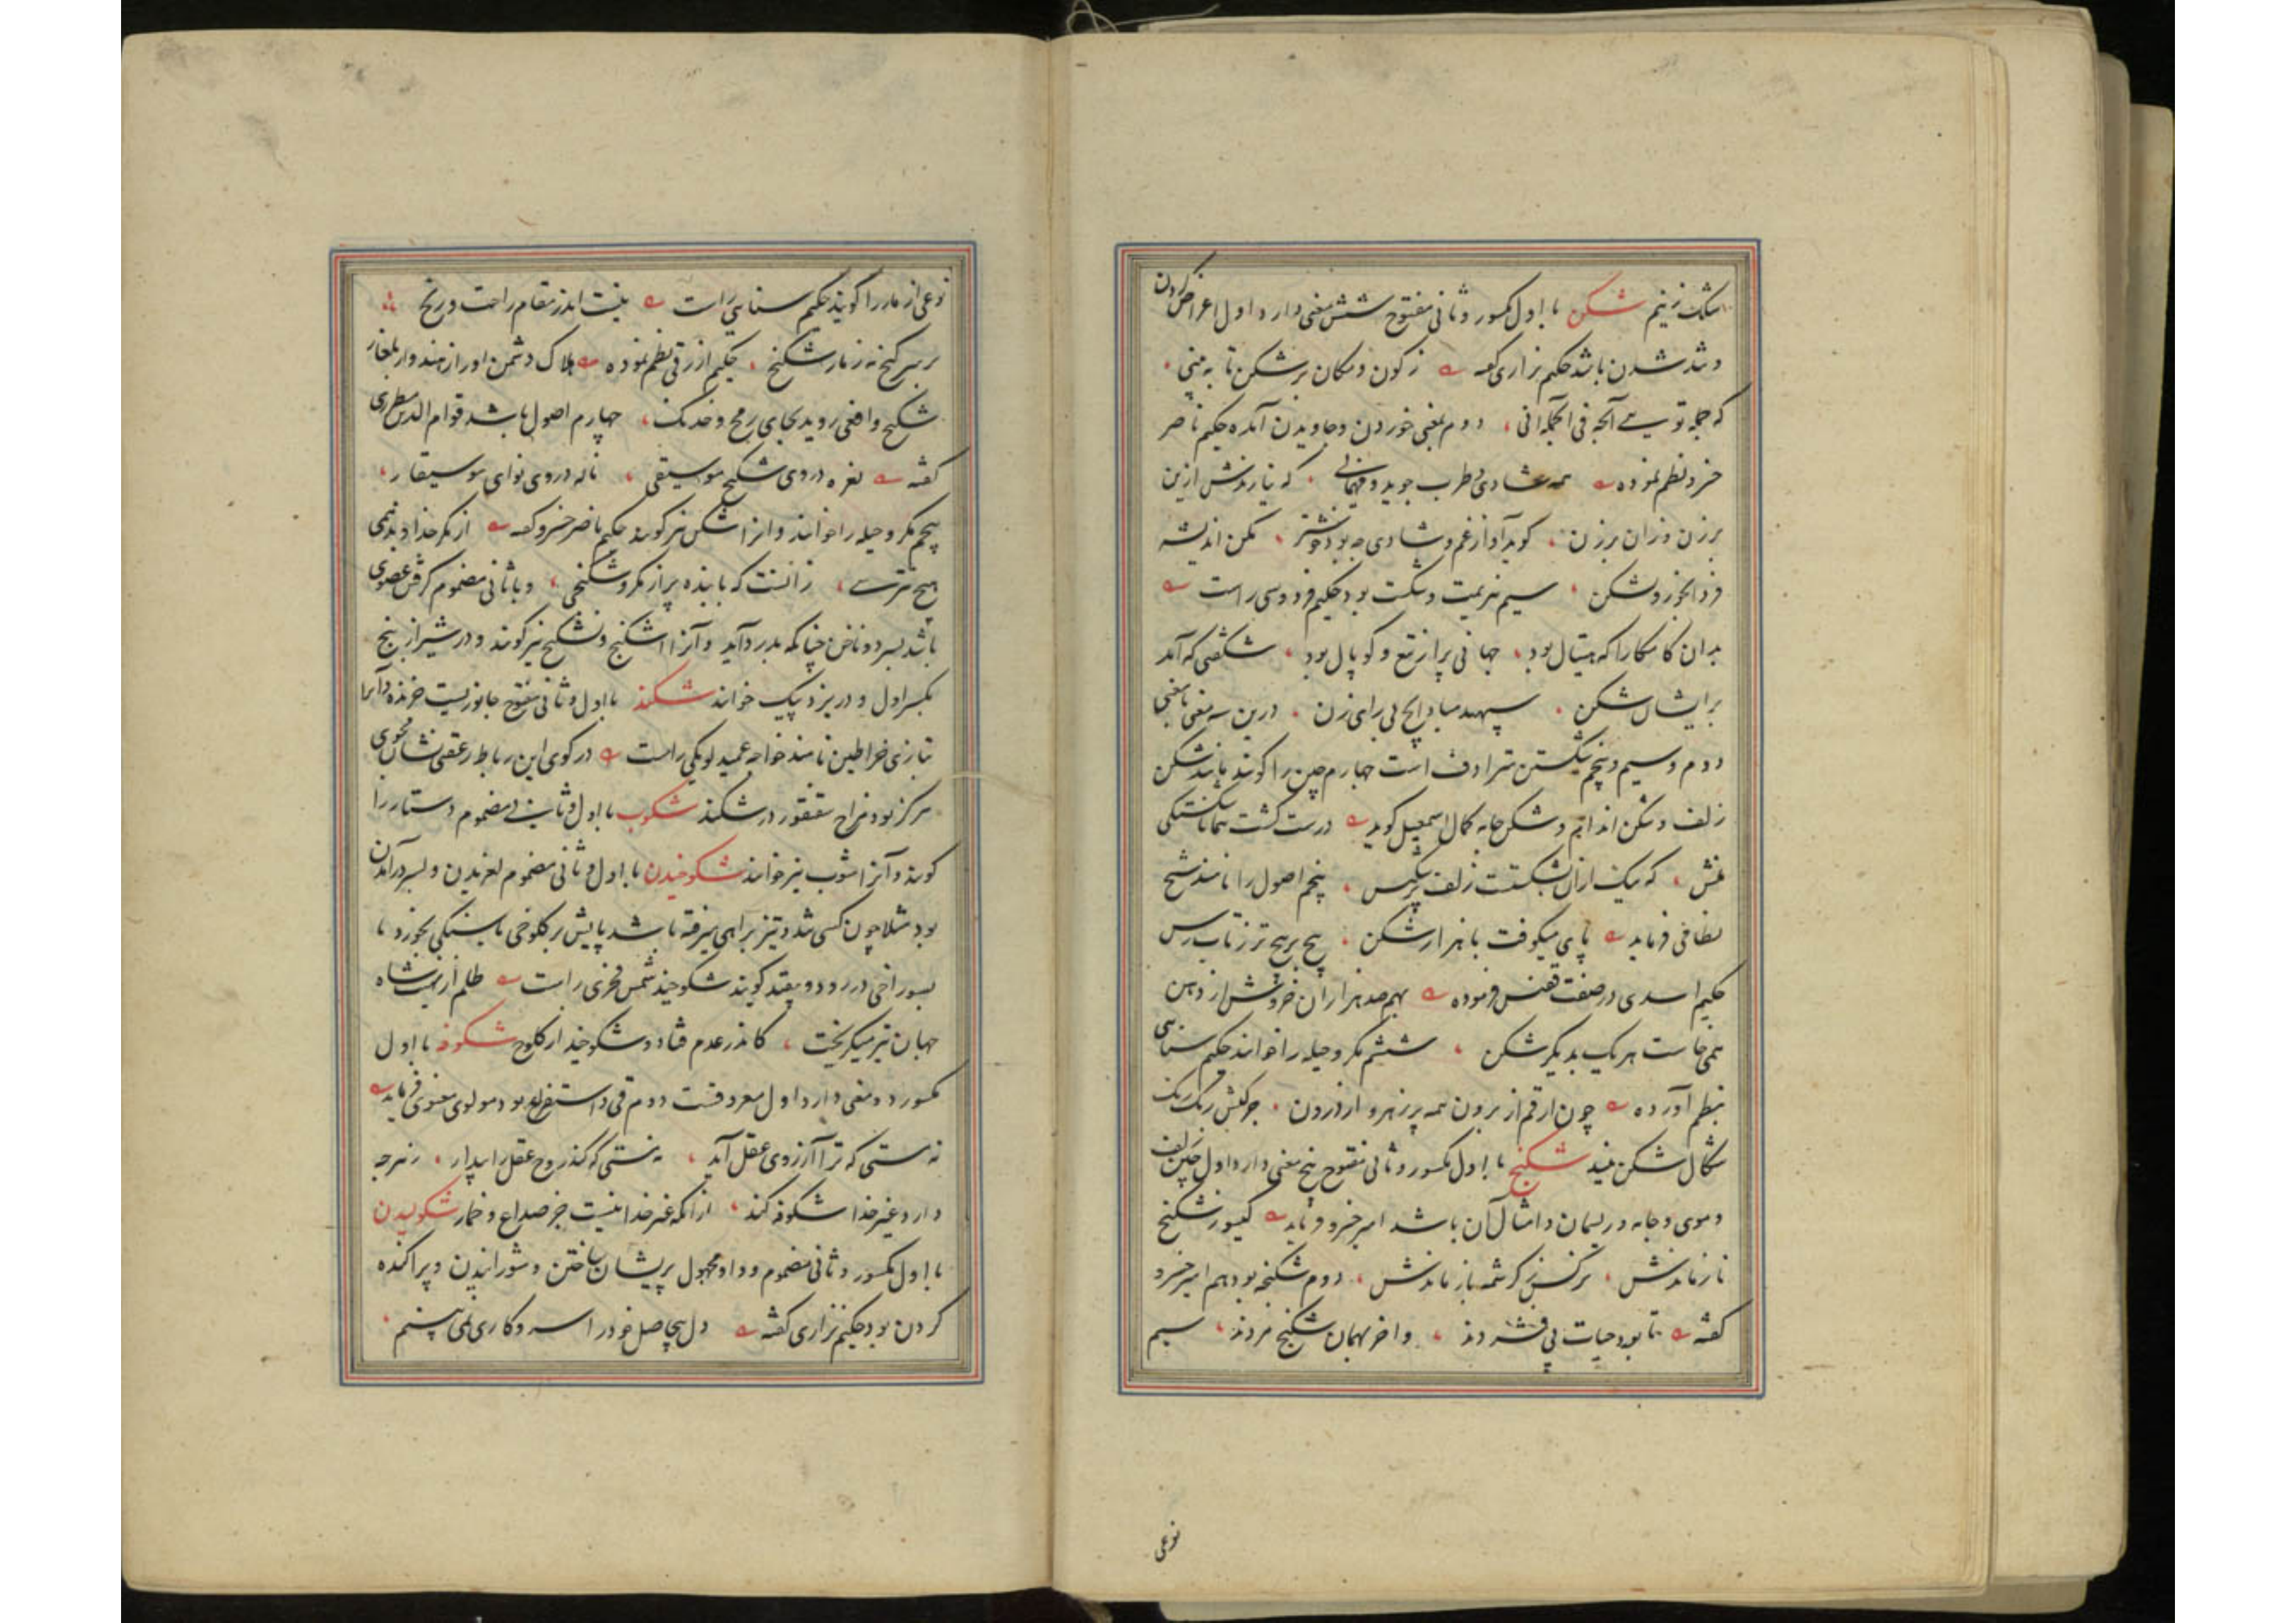 شکن با اول مکسور و ثانی مفتوح شش معنی دارد اول اعراض کردن
و شد شدن باشد حکیم نزاری گفته ز کون و مکان بر شکن تا به بینی
که جمله تویی دوم بمعنی خوردن و جاویدن آمده حکیم ناصر
خسرو نظم نموده همه شادی و طرب جوید و مهمانی که نیارندش ازین
برزن و زان برزن گوید آواز غم و شادی چه بود خوشتر مکن اندیشه
فردا بخور و بشکن سیم هزیمت و شکست بود حکیم فردوسی راست
بدان کامکارا که هیتال بود جهانی پر از تیغ و کوپال بود شگفتی که آمد
بر ایشان شکن سپهبد مباد ایچ بی رای زن درین سه معنی یعنی
دوم و سیم و پنجم بشکستن مترادف است چهارم چین را گویند مانند شکن
زلف و شکن اندام و شکن جامه کمال اسمعیل گوید درست گشت همانا شکستگی
منش که نیک ازان بشکست زلف پنجم اصول را نامند شیخ
نظامی فرماید پای میکوفت با هزار شکن پیچ بر پیچ تر ز تاب رسن
حکیم اسدی در صفت ققنس فرموده بهم صد هزاران خروش از دهن
همی خاست هر یک بدیگر شکن ششم مکر و حیله را خوانند حکیم سنایی
بنظم آورده چون ارقم از برون همه پر زهر و از درون
شکال شکن شکنج با اول مکسور و ثانی مفتوح پنج معنی دارد اول چین زلف
و موی و جامه و ریسمان و امثال آن باشد امیر خسرو فرماید گیسو ز شکنج
ناز ماندش نرگس ز کرشمه باز ماندش دوم شکنجه بود هم امیر خسرو
گفته تا بود حیات پی فشردند و آخر بهمان شکنج مردند سیم
نوعی
نوعی از مار را گویند حکیم سنایی راست نیست اندر مقام راحت و رنج
بر سر گنج نه ز مار شکنج حکیم ازرقی نظم نموده هلاک دشمن او را ز هند و از بلغار
شکنج و افعی روید بجای رمح و خدنگ چهارم اصول باشد قوام الدین مطرزی
گفته نغره در وی شکنج موسیقی ناله در وی نوای موسیقار
پنجم مکر و حیله را خوانند و آنرا شکن نیز گویند حکیم ناصر خسرو گفته از مکر خداوند نمی
هیچ نترسی زانست که با بنده پر از مکر و شکنجی و با ثانی مضموم گرفتن عضوی
باشد بسر دو ناخن چنانکه بدرد آید و آنرا اشکنج و نشکنج نیز گویند و در شیراز بنج
بکسر اول و در یزد پیک خوانند شکند با اول و ثانی مفتوح جانوریست خزنده که آنرا
بتازی خراطین نامند خواجه عمید لومکی راست در کوی این رباط ز عنقی نشان مجوی
هرگز بود مزاج سقنقور در شکند شکوب با اول و ثانی مضموم دستار را
گویند و آنرا اشوب نیز خوانند شکوخیدن با اول و ثانی مضموم لغزیدن و بسر درآمدن
بود مثلا چون کسی تند و تیز براهی میرفته باشد پایش بر کلوخی یا سنگی بخورد یا
بسوراخی در رود و بیفتد گویند شکوخید شمس فخری راست ظلم از نهیب شاه
جهان تیز میگریخت کاندر عدم فتاد و شکوخید از کلوخ شکوفه با اول
مکسور دو معنی دارد اول معروفست دوم قی و استفراغ بود مولوی معنوی فرماید
نه مستی که ترا آرزوی عقل آید نه مستی که کند روح عقل را بیدار ز هر چه
دارد غیر خدا شکوفه کند ازانکه غیر خدا نیست جز صداع و خمار شکولیدن
با اول مکسور و ثانی مضموم و واو مجهول پریشان ساختن و شورانیدن و پراکنده
کردن بود حکیم نزاری گفته دل بیحاصل خود را سر و کاری نمی بینم